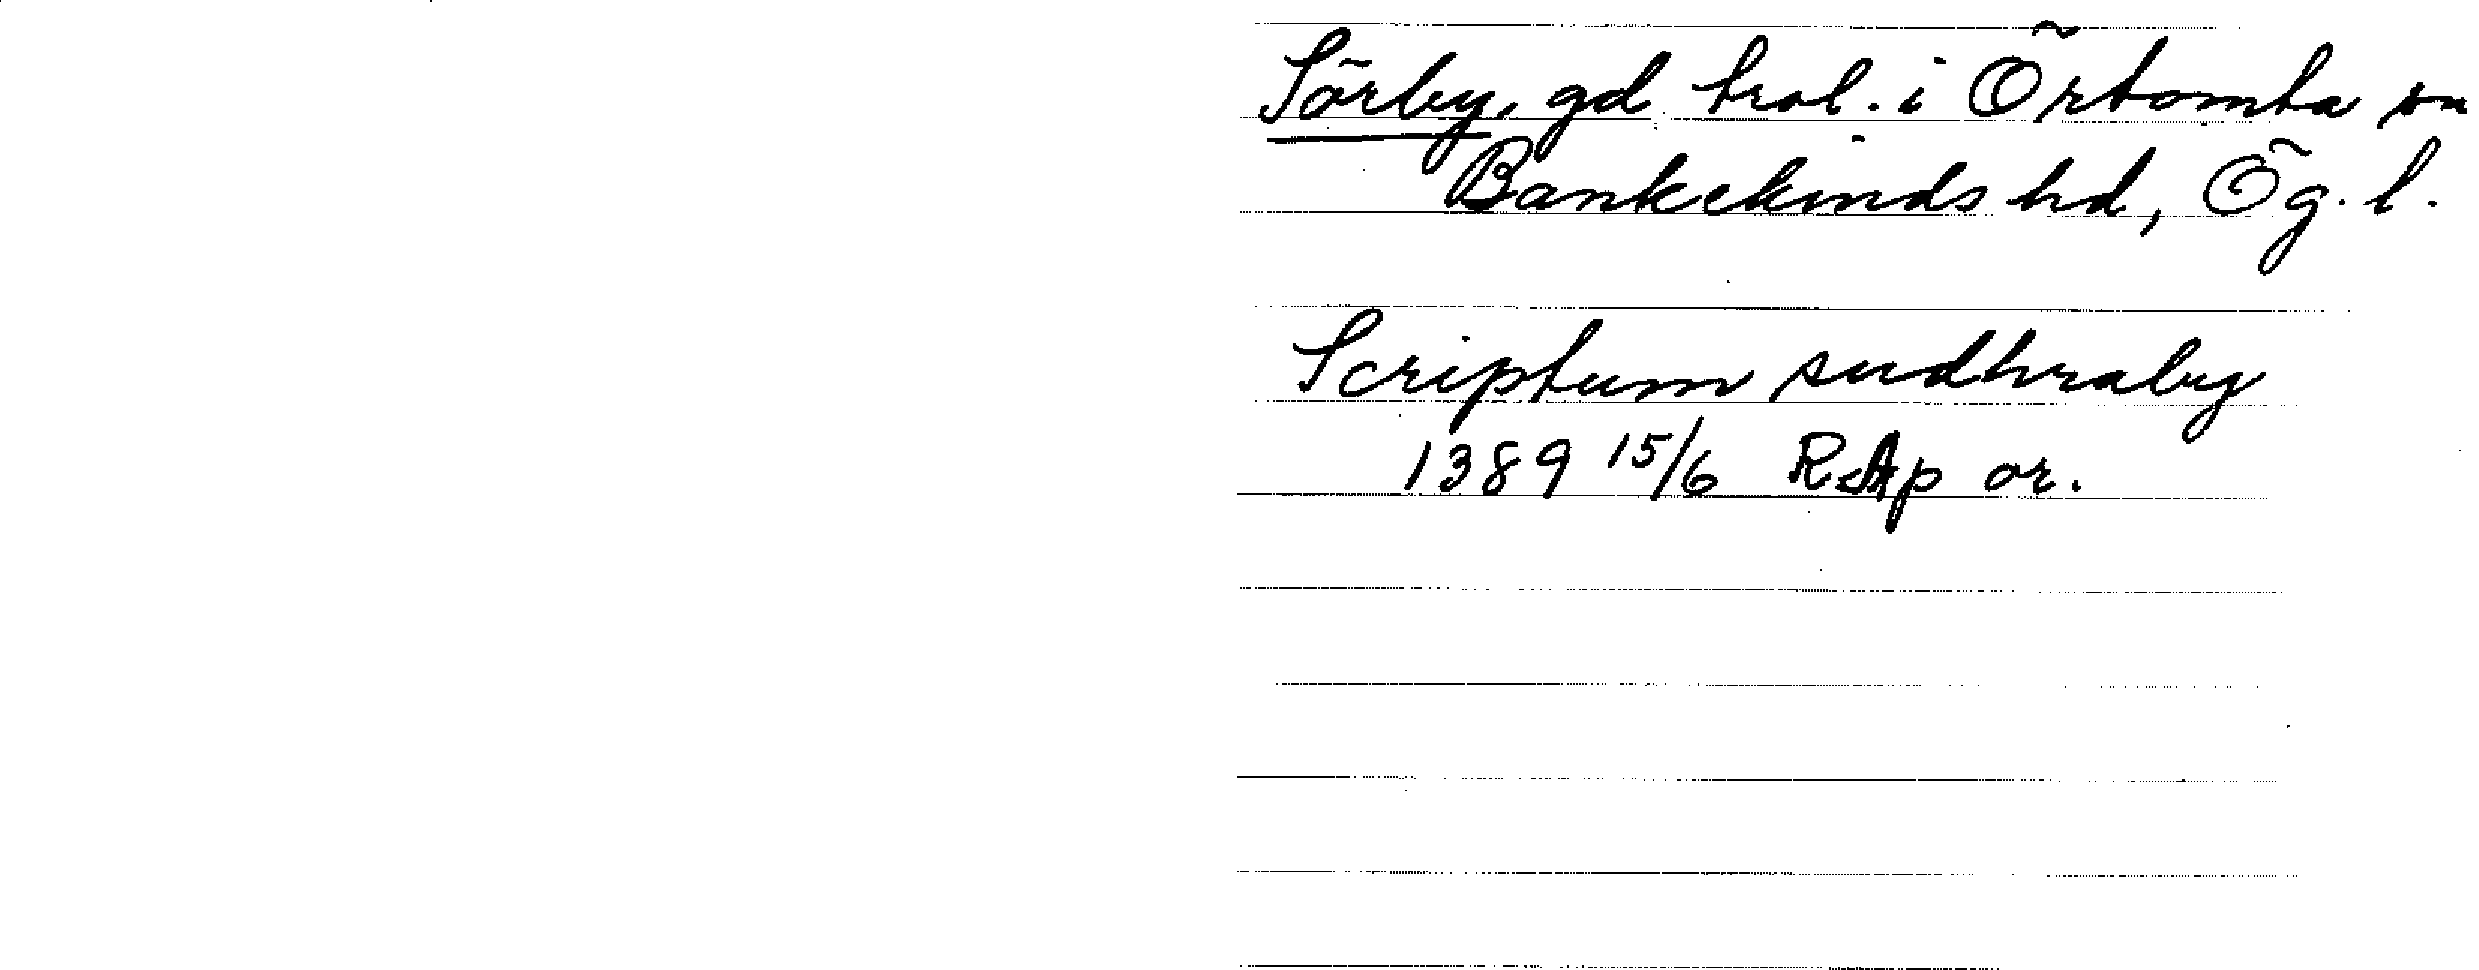 Sörby, gd trol. i Örtomta sn
Bankekinds hd, Ög. l.
Scriptum sudhraby
1389 15/6 RAp or.